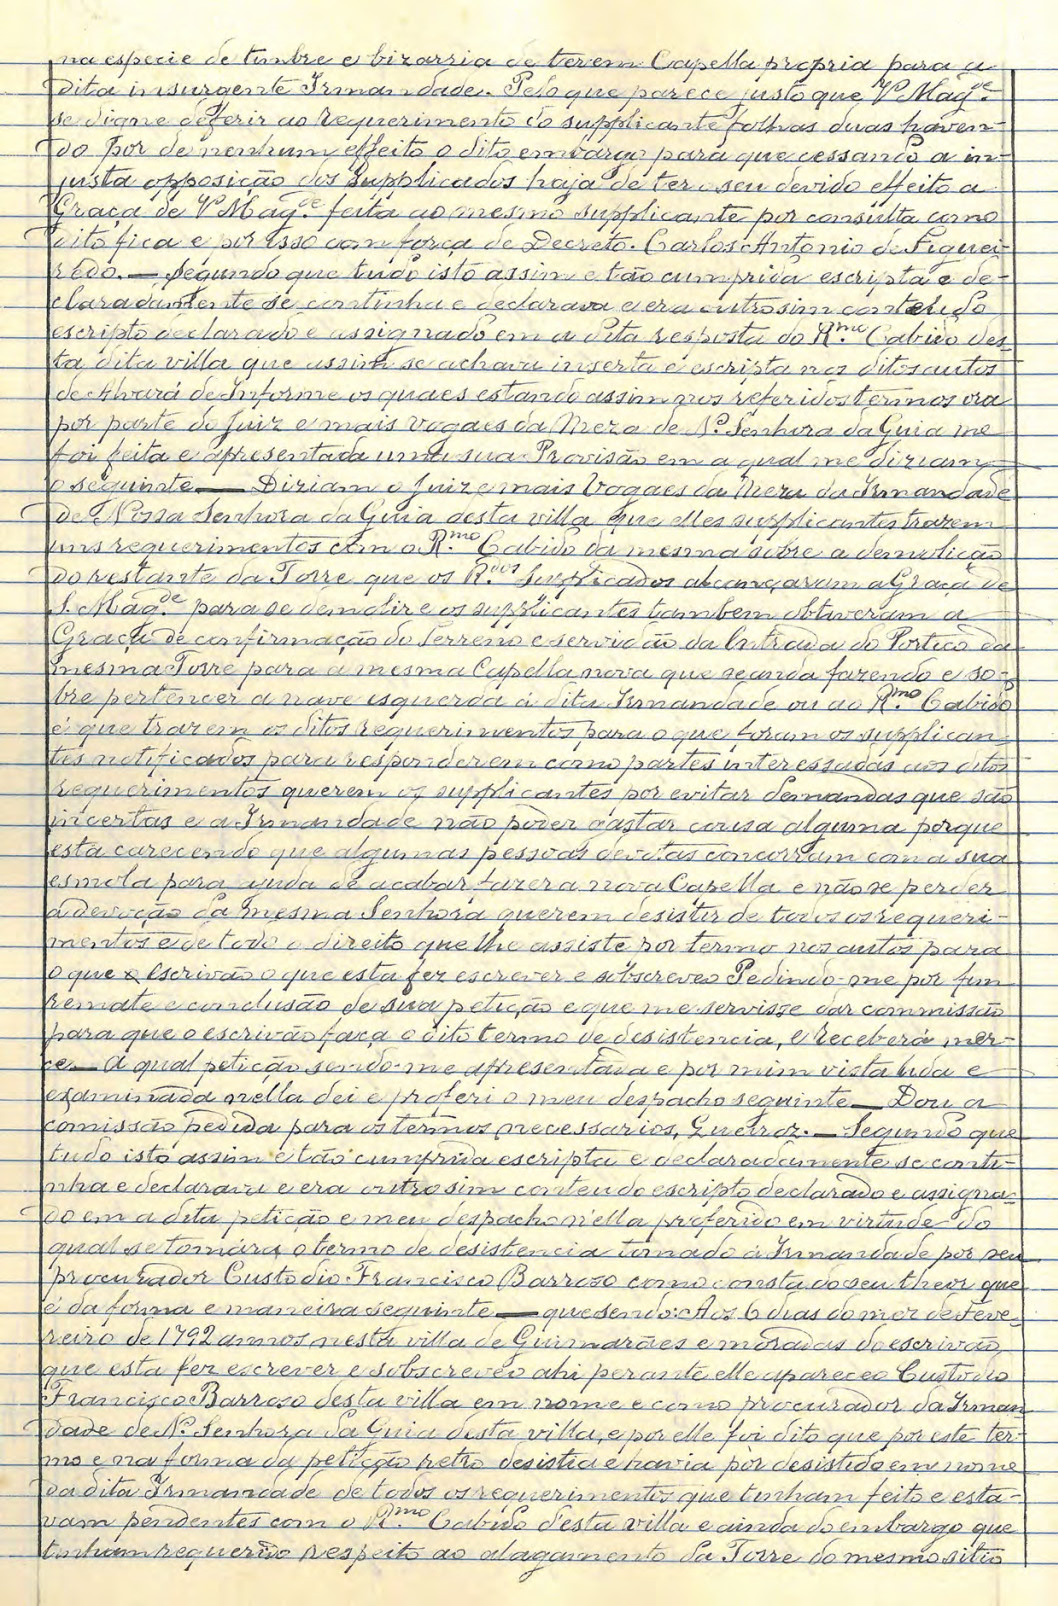 na especie de timbre e bizarria de terem Capella propria para a
dita insurgente Irmandade. Pelo que parece justo que V Magde
se digne deferir ao requerimento do supplicante folhas duas haven-
do por de nenhum effeito o dito embargo para que cessando a in-
justa opposição dos supplicados haja de ter o seu devido effeito a
Graça de V Magde feita ao mesmo supplicante por consulta como
dito fica e por isso com força de Decreto. Carlos Antonio de Figuei-
redo. — Segundo que tudo isto assim e tão cumprida escripta e de-
claradamente se continha e declarava e era outrosim conteudo
escripto declarado e assignado em a dita resposta do Rmo Cabido des-
ta dita villa que assim se achava inserta e escripta nos ditos autos
de Alvará de Informe os quaes estando assim nos referidos termos ora
por parte do Juiz e mais vogaes da Meza de Nª Senhora da Guia me
foi feita e apresentada uma sua Provisão em a qual me diziam
o seguinte — Diziam o Juiz e mais Vogaes da Meza da Irmandade
de Nossa Senhora da Guia desta villa que elles supplicantes trazem
uns requerimentos com o Rmo Cabido da mesma sobre a demolição
do restante da Torre que os Rdos supplicados alcançaram a Graça de
S. Magde para se demolir e os supplicantes tambem obtiveram a
Graça de confirmação do Terreno e servidão da Entrada do Portico da
mesma Torre para a mesma Capella nova que se anda fazendo e so-
bre pertencer a nave esquerda á dita Irmandade ou ao Rmo Cabido
é que trazem os ditos requerimentos para o que foram os supplican-
tes notificados para responderem como partes interessadas aos ditos
requerimentos querem os supplicantes por evitar demandas que são
incertas e a Irmandade não poder gastar cousa alguma porque
está carecendo que algumas pessoas devotas concorram com a sua
esmola para ajuda de acabar fazer a nova Capella e não se perder
a devoção da mesma Senhora querem desistir de todos os requeri-
mentos e de todo o direito que lhe assiste por termo nos autos para
o que o Escrivão o que esta fez escrever e sobscreveo Pedindo-me por fim
remate e conclusão de sua petição e que me servisse dar commissão
para que o escrivão faça o dito termo de desistencia, e receberá mer-
ce — A qual petição sendo-me apresentada e por mim vista lida e
examinada nella dei e proferi o meu despacho seguinte — Dou a
comissão pedida para os termos necessarios, Queiroz. — Segundo que
tudo isto assim e tão cumprida escripta e declaradamente se conti-
nha e declarava e era outro sim conteudo escripto declarado e assigna-
do em a dita petição e meu despacho n'ella proferido em virtude do
qual se tomára o termo de desistencia tomado á Irmandade por seu
procurador Custodio Francisco Barroso como consta do seu theor que
é da forma e maneira seguinte — que sendo: Aos 6 dias do mez de Feve-
reiro de 1792 annos nesta villa de Guimarães e moradas do escrivão
que esta fez escrever e sobscreveo ahi perante elle apareceo Custodio
Francisco Barroso desta villa em nome e como procurador da Irman
dade de Nª Senhora da Guia desta villa, e por elle foi dito que por este ter-
mo e na forma da petição retro desistia e havia por desistido em nome
da dita Irmandade de todos os requerimentos que tinham feito e esta-
vam pendentes com o Rmo Cabido d'esta villa e ainda do embargo que
tinham requerido respeito ao alagamento da Torre do mesmo sitio